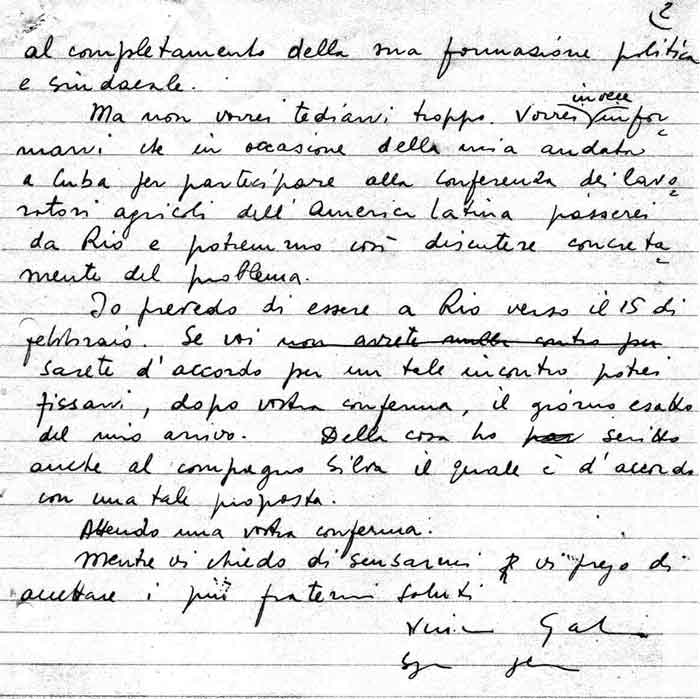 2
al completamento della sua formazione politica
e sindacale.
Ma non vorrei tediarvi troppo. Vorrei invece infor
marvi che in occasione della mia andata
a Cuba per partecipare alla conferenza dei lavo
ratori agricoli dell'America Latina passerei
da Rio e potremmo così discutere concreta
mente del problema.
Io prevedo di essere a Rio verso il 15 di
febbraio. Se voi non avrete nulla contro per
sarete d'accordo per un tale incontro potrei
fissarvi, dopo vostra conferma, il giorno esatto
del mio arrivo. Della cosa ho scritto
anche al compagno Silva il quale è d'accordo
con una tale proposta.
Attendo una vostra conferma.
Mentre vi chiedo di scusarmi vi prego di
accettare i più fraterni saluti